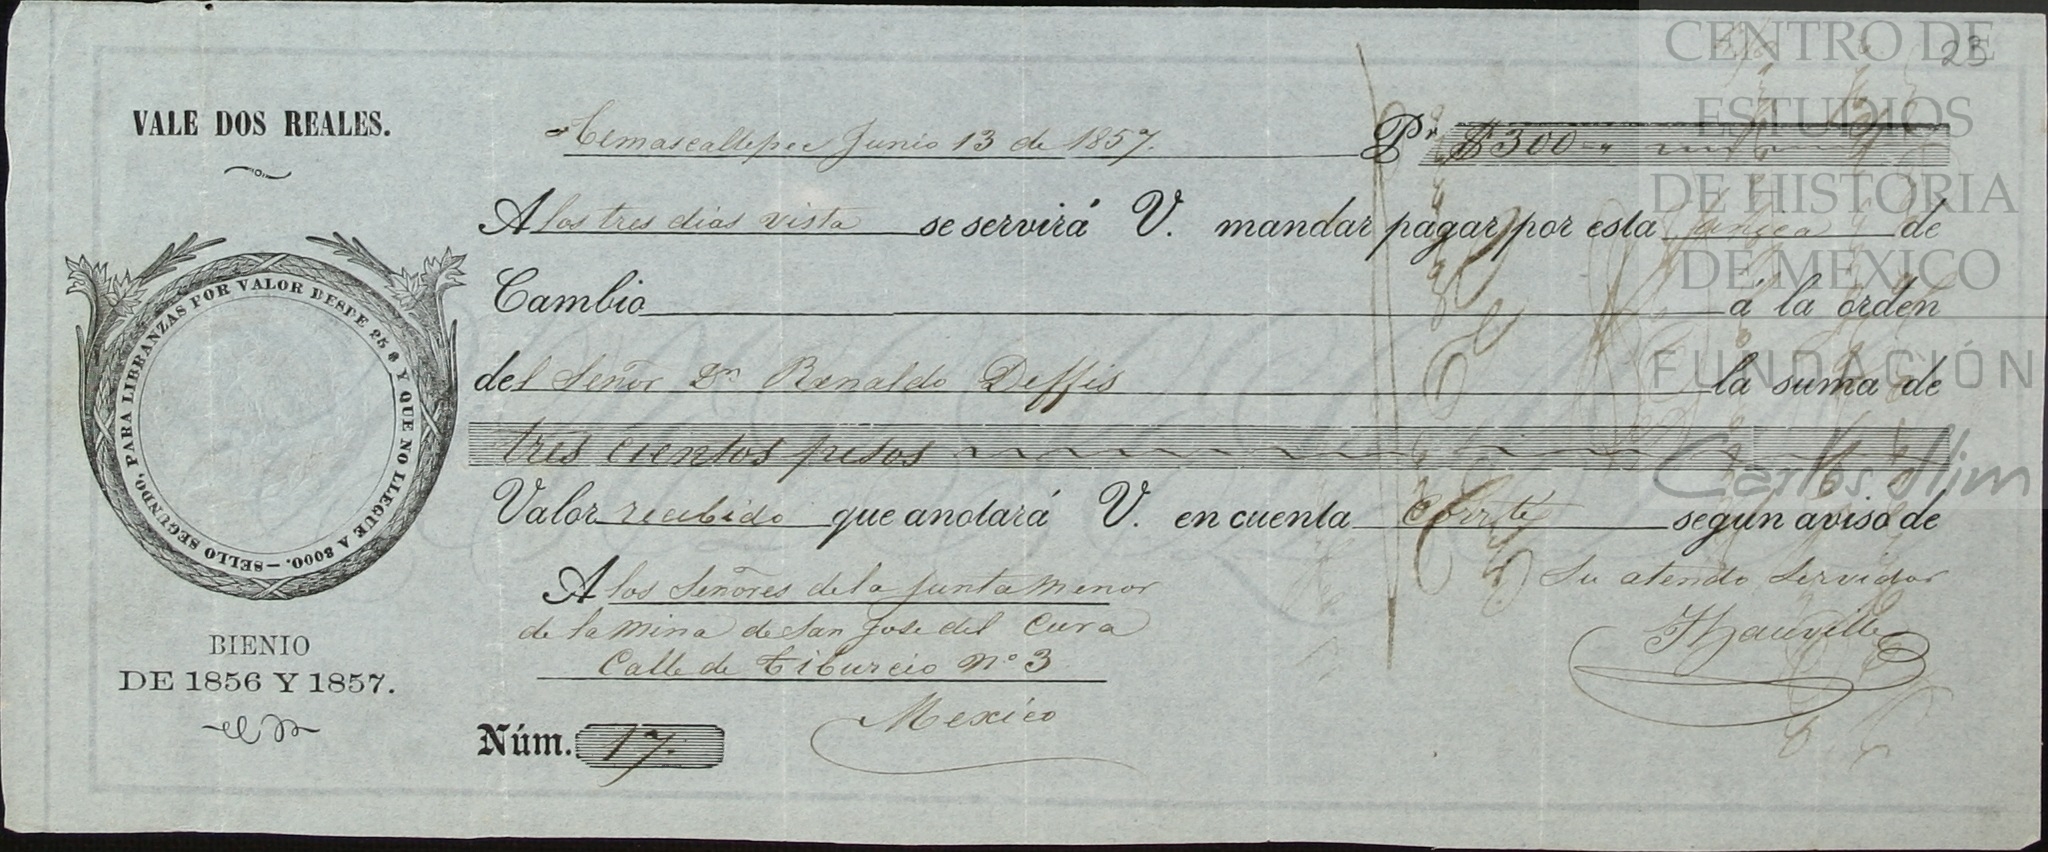 VALE DOS REALES.
PARA LIBRANZAS POR VALOR DESDE 25 $ Y QUE NO LLEGUE A 3000. — SELLO SEGUNDO,
BIENIO
DE 1856 Y 1857.
23
Temascaltepec Junio 13 de 1857. Pr. $300
A los tres dias vista se servirá V. mandar pagar por esta unica de
Cambio á la orden
del Señor Dn Renaldo Deffis la suma de
tres cientos pesos
Valor recibido que anotará V. en cuenta Corrte segun aviso de
Su atendo Servidor
A los Señores de la Junta Menor
de la Mina de San Jose del Cura
Calle de Tiburcio No 3
Mexico
Núm. 17.
CENTRO DE
ESTUDIOS
DE HISTORIA
DE MEXICO
FUNDACIÓN
Carlos Slim